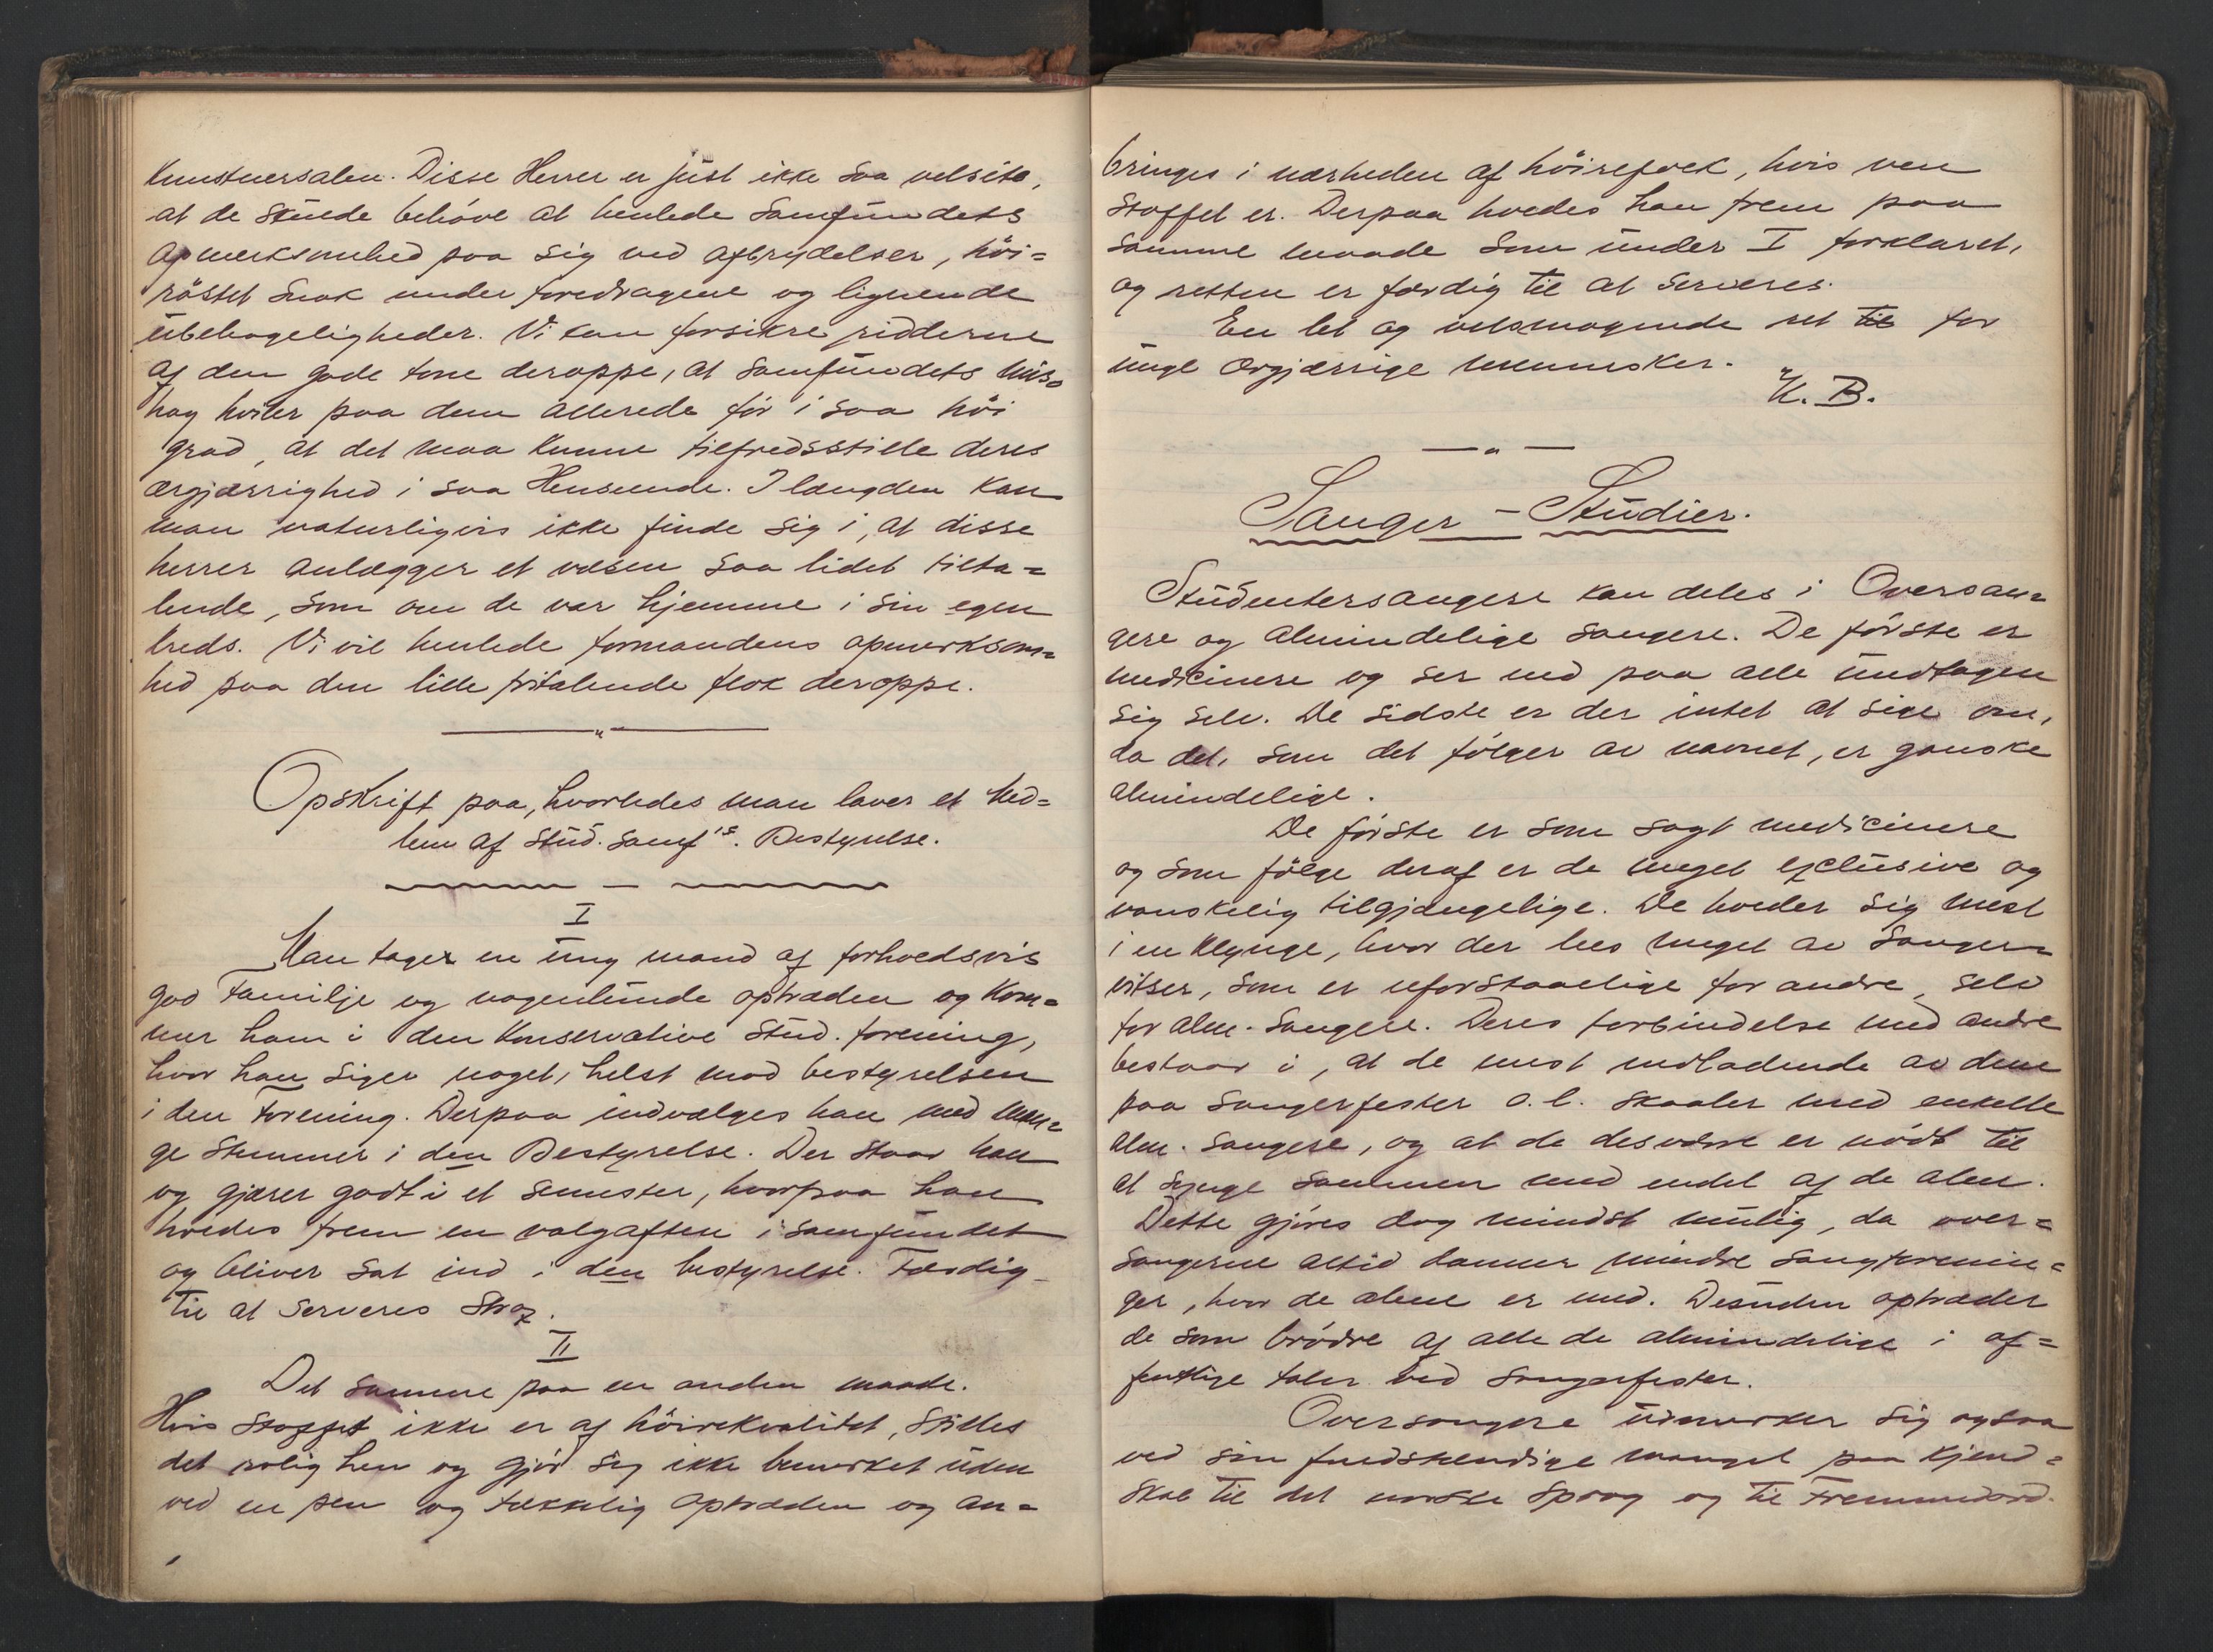 Kunstnersalen. Disse Herrer er just ikke saa velsete,
at de skulde behöve at henlede Samfundets
opmerksomhed paa sig ved afbrydelser, höi=
röstet Snak under foredragene og lignende
ubehageligheder. Vi kan forsikre ridderne
af den gode tone deroppe, at Samfundets mis=
hag hviler paa dem allerede för i saa höi
grad, at det maa kunne tilfredsstille deres
ærgjærrighed i saa Henseende. I længden kan
man naturligvis ikke finde sig i, at disse
herrer anlægger et væsen saa lidet tilta=
lende, som om de var hjemme i sin egen
kreds. Vi vil henlede formandens opmerksom=
hed paa den lille fritalende flok deroppe.
Opskrift paa, hvorledes man laver et Med=
lem af Stud. Samf's. Bestyrelse.
I
Man tager en ung mand af forholdsvis
god Familje og nogenlunde optræden og kom=
mer ham i den Konservative Stud. forening,
hvor han siger noget, helst mod bestyrelsen
i den Forening. Derpaa indvælges han med man=
ge Stemmer i den Bestyrelse. Der staar han
og gjærer godt i et Semester, hvorpaa han
holdes frem en valgaften i Samfundet
og bliver sat ind i den bestyrelse. Færdig
til at Serveres Strax.
II
Det Samme paa en anden maade.
Hvis Stoffet ikke er af höirekvalitet, Stilles
det rolig hen og gjör sig ikke bemerket uden
ved en pen og tækkelig optræden og an=
bringes i nærheden af höirefolk, hvis ven
Stoffet er. Derpaa holdes han frem paa
samme maade som under I forklaret,
og retten er færdig til at Serveres.
En let og velsmagende ret til for
unge ærgjærrige mennesker.
K. B.
Sanger - Studier.
Studentersangere kan deles i Oversan=
gere og almindelige sangere. De förste er
medicinere og ser ned paa alle undtagen
sig selv. De sidste er der intet at sige om,
da de, som det fölger av navnet, er ganske
almindelige.
De förste er som sagt medicinere
og som fölge deraf er de meget exclusive og
vanskelig tilgjængelige. De holder sig mest
i en klynge, hvor der lees meget av Sanger=
vitser, som er uforstaaelige for andre, selv
for alm. Sangere. Deres forbindelse med andre
bestaar i, at de mest nedladende av dem
paa Sangerfester o.l. skaaler med enkelte
alm. Sangere, og at de desværre er nödt til
at synge sammen med endel af de alm.
Dette gjöres dog mindst mulig, da over=
sangerne altid danner mindre sangforenin=
ger, hvor de alene er med. Desuden optræder
de som brödre af alle de almindelige i of=
fentlige taler ved Sangerfester.
Oversangere udmerker sig ogsaa
ved sin fuldstendige mangel paa kjend=
skab til det norske Sprog og til Fremmedord.